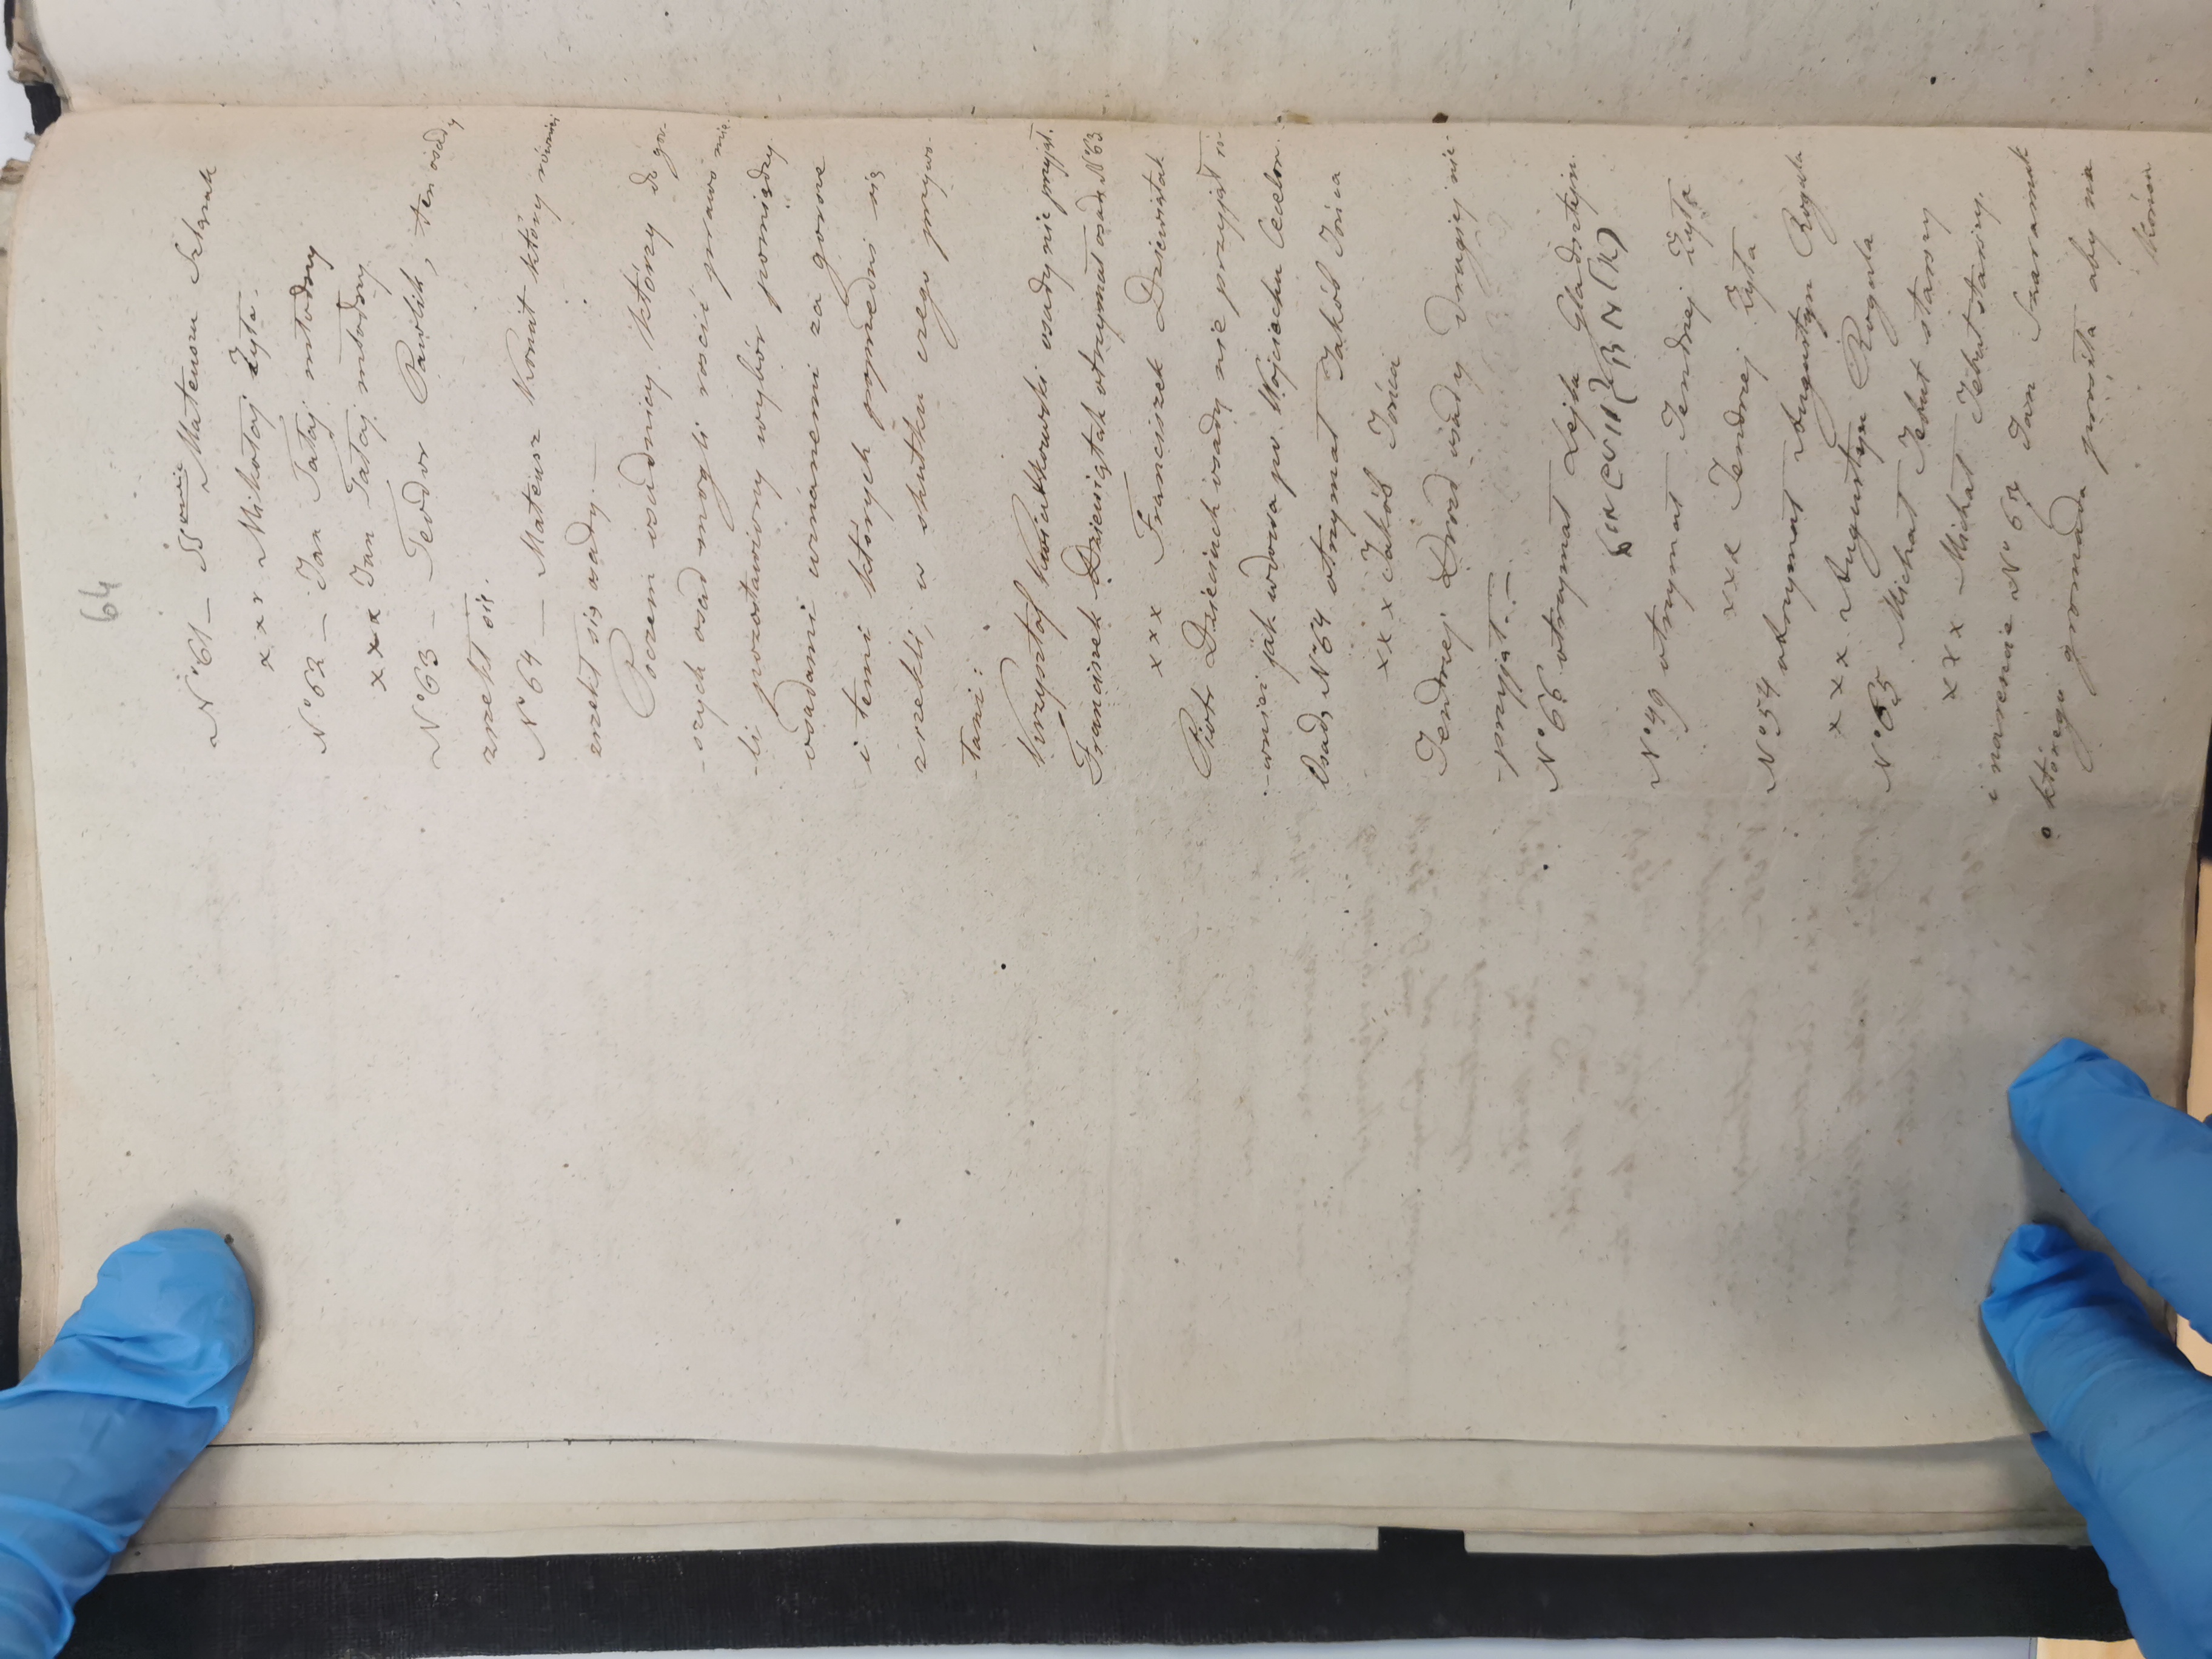 64
N° 61 – Mateusz
x x x Mikołaj Żyła.
N° 62 – Jan Tataj młodszy
x x x Jan Tataj młodszy
N° 63 – Teodor Pawlik, ten osady
zrzekł się.
N° 64 – Mateusz Kornat który również
zrzekł się osady. –
Poczem osadnicy którzy do gor-
-szych osad mogli rościć prawo mie-
-li pozostawiony wybór pomiędzy
osadami uznanemi za gorsze
i temi których poprzedni się
zrzekli, w skutku czego przywo-
-łani:
Krzysztof Kwiatkowski osady nie przyjął.
Franciszek Dziewiątak otrzymał osadę N° 63
x x x Franciszek Dziewiątak
Piotr osady nie przyjął ró-
-wnież jak wdowa po Wojciechu
Osadę N° 64 otrzymał Jakób
x x x Jakób
Jendrzej osady drugiej nie
przyjął. –
N° 66 otrzymał Lejba
N° 49 otrzymał Jendrzej Żyła
x x x Jendrzej Żyła
N° 54 otrzymał Augustyn Rogula
x x x Augustyn Rogula
N° 65 Michał Jekut starszy
x x x – Michał Jekut starszy,
i nareszcie N° 67 Jan
o którego gromada prosiła aby na